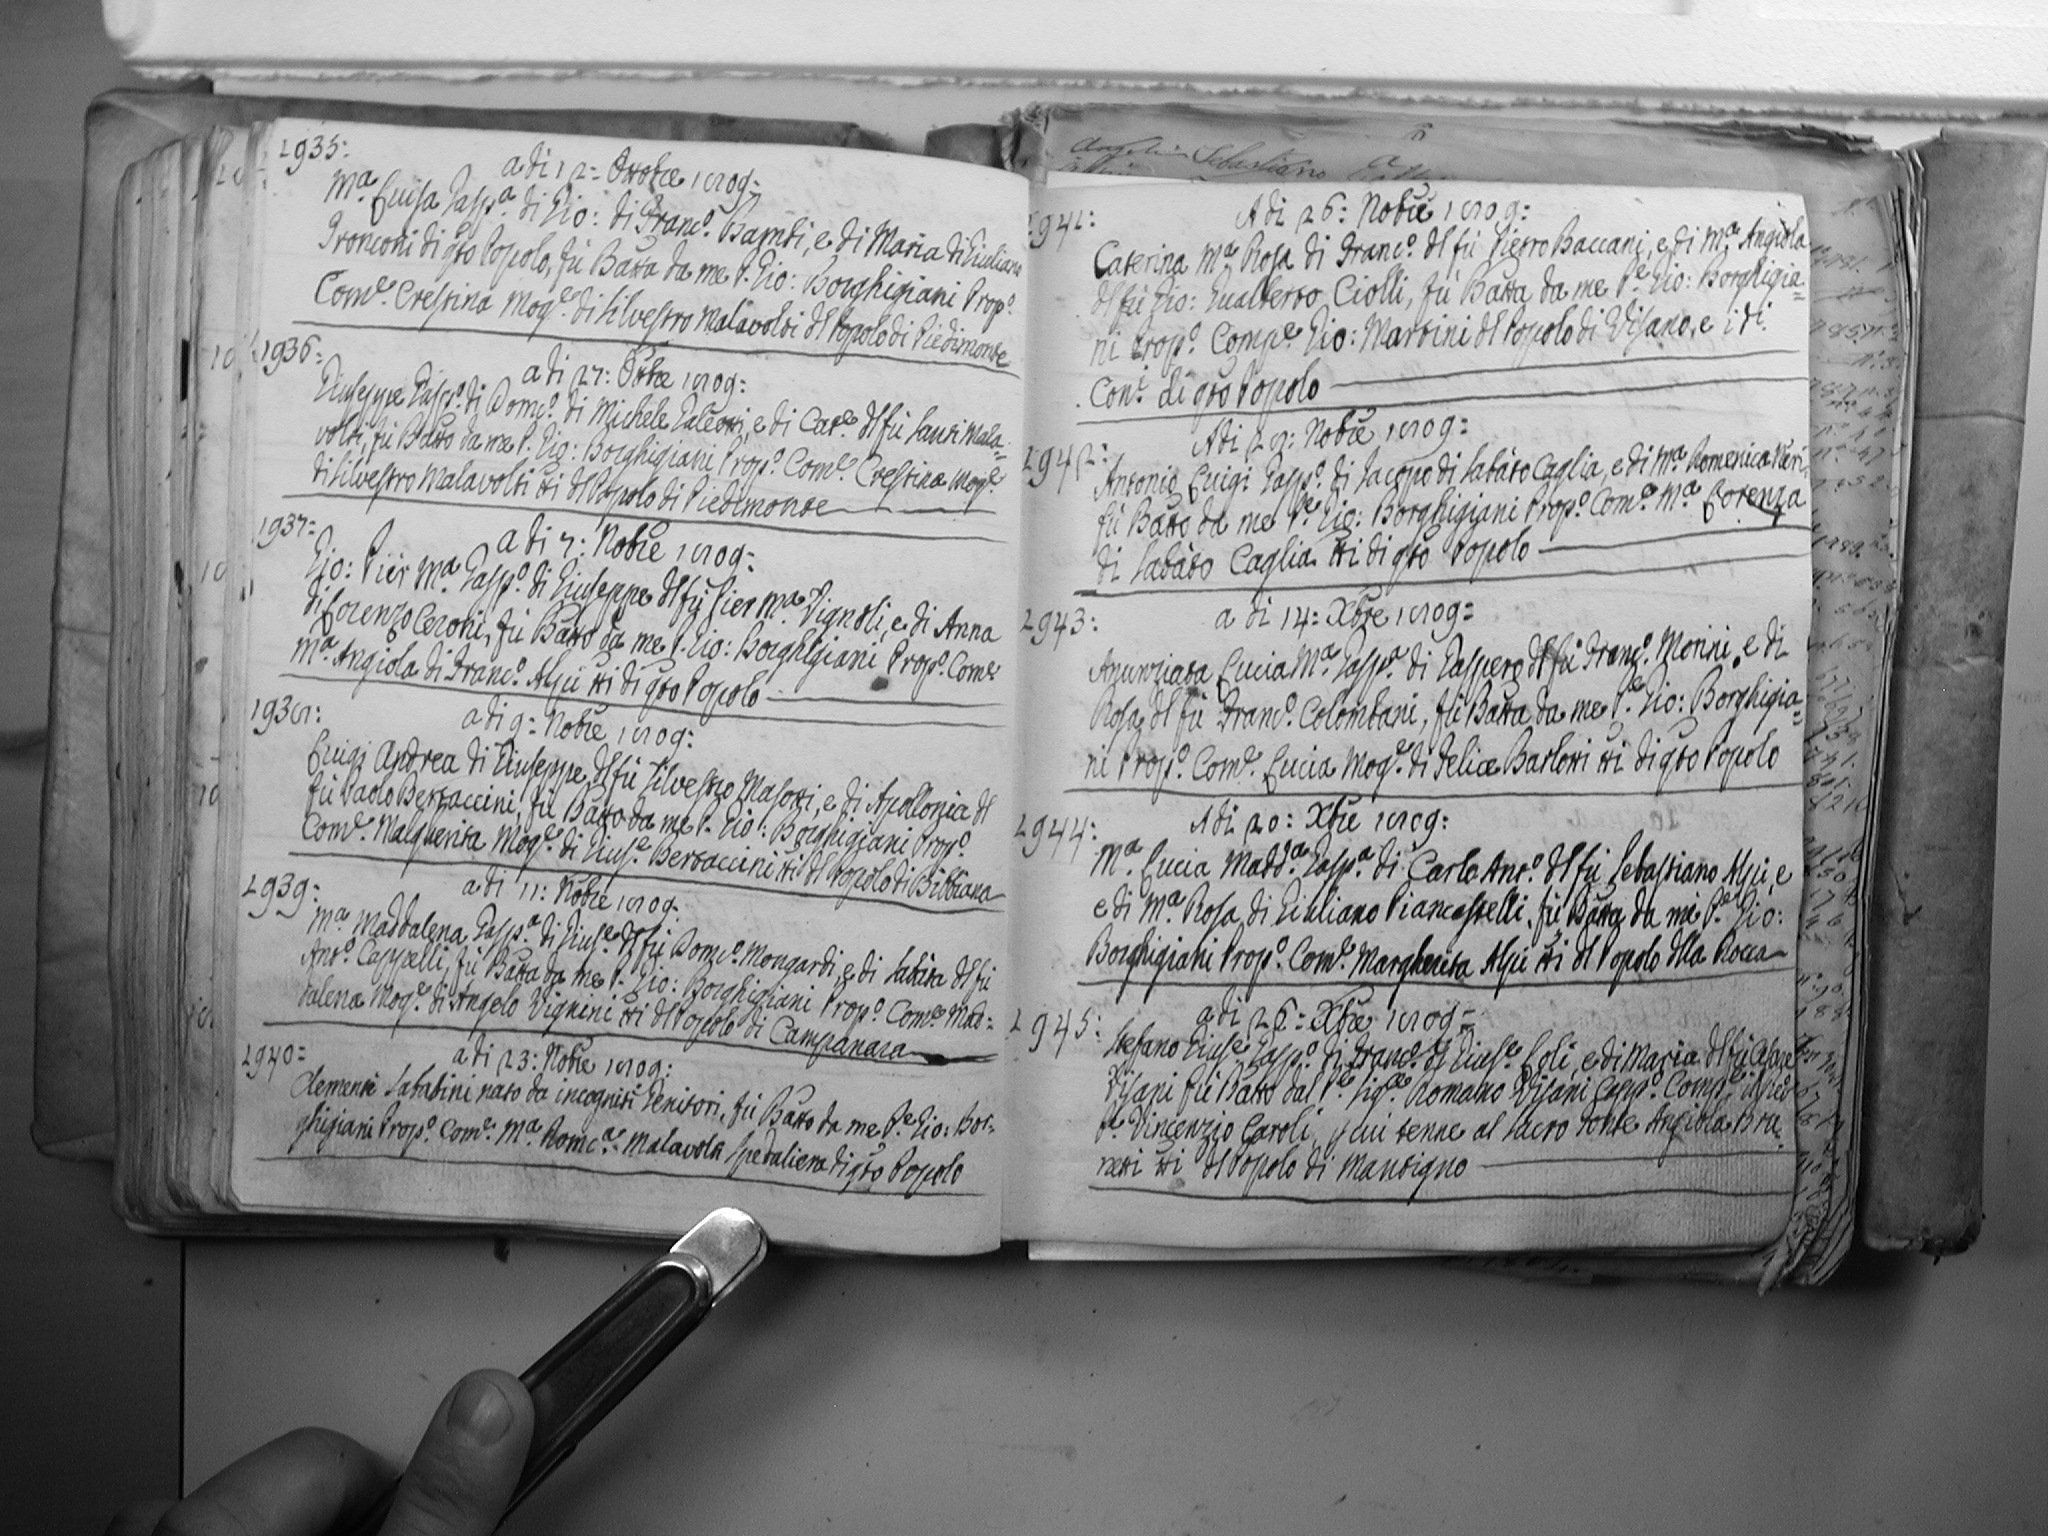 1935:
a di 12: Ottobre 1809:
Ma. Luisa Gaspa. di Gio: di Franco. Bambi, e di Maria di Giuliano
Tronconi di qto Popolo, fù Batta da me P. Gio: Borghigiani Propo.
Come. Crestina Moge. di Silvestro Malavolti dl Popolo di Piedimonte
1936:
a di 27: Ottbre 1809:
Giuseppe Gaspo. di Domco. di Michele Galeotti, e di Cate. dl fù Santi Mala=
volti, fù Batto da me P. Gio: Borghigiani Propo. Come. Crestina Moge.
di Silvestro Malavolti tti dl Popolo di Piedimonte
1937:
a di 7: Nobre 1809:
Gio: Pier Ma. Gaspo. di Giuseppe dl fù Pier Ma. Vignoli, e di Anna
di Lorenzo Ceroni, fù Batto da me P. Gio: Borghigiani Propo. Come
Ma. Angiola di Franco. Alpi tti di qto Popolo
1938:
a di 9: Nobre 1809:
Luigi Andrea di Giuseppe dl fù Silvestro Masotti, e di Apollonia dl
fù Paolo Bertaccini, fù Batto da me P. Gio: Borghigiani Propo.
Come. Margherita Moge. di Giuse. Bertaccini tti dl Popolo di Bibbiana
1939:
a di 11: Nobre 1809:
Ma. Maddalena Gaspa. di Giuse. dl fù Domco. Mongardi, e di Sabata dl fù
Anto. Cappelli, fù Batta da me P. Gio: Borghigiani Propo. Come. Mad=
dalena Moge. di Angelo Vignini tti dl Popolo di Campanara
1940:
a di 23: Nobre 1809:
Clemente Sabatini nato da incogniti Genitori, fù Batto da me Pe. Gio: Bor=
ghigiani Propo. Come. Ma. Domca. Malavolti Spedaliera di qto Popolo
1941:
A di 26: Nobre 1809:
Caterina Ma. Rosa di Franco. dl fù Pietro Baccani, e di Ma. Angiola
dl fù Gio: Gualberto Ciolli, fù Batta da me Pe. Gio: Borghigia=
ni Propo. Compe. Gio: Martini dl Popolo di Visano, e i di
Coni. di qto Popolo
1942:
A di 29: Nobre 1809:
Antonio Luigi Gaspo. di Jacopo di Sabato Caglia, e di Ma. Domenica Neri,
fù Batto da me Pe. Gio: Borghigiani Propo. Come. Ma. Lorenza
di Sabato Caglia tti di qto Popolo
1943:
a di 14: Xbre 1809:
Anunziata Lucia Ma. Gaspa. di Gaspero dl fù Franco. Morini, e di
Rosa dl fù Franco. Colombani, fù Batta da me Pe. Gio: Borghigia=
ni Propo. Come. Lucia Moge. di Felice Bartotti tti di qto Popolo
1944:
A di 20: Xbre 1809:
Ma. Lucia Madda. Gaspa. di Carlo Anto. dl fù Sebastiano Alpi, e
e di Ma. Rosa di Giuliano Piancastelli, fù Batta da me Pe. Gio:
Borghigiani Propo. Come. Margherita Alpi tti dl Popolo dlla Rocca
1945:
a di 26: Xbre 1809:
Stefano Giuse. Gaspo. di Franco. di Giuse. Poli, e di Maria dl fù Cesare
Visani fù Batto dal Pe. Sige. Romano Visani Capo. Compe.
Pe. Vincenzio Caroli, p lui tenne al Sacro Fonte Angiola Bru=
netti tti dl Popolo di Mantigno